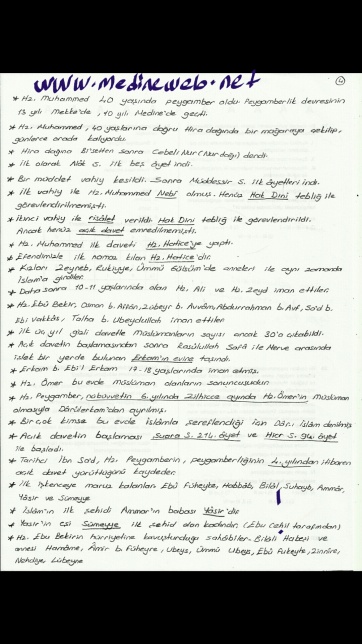 www.medineweb.net
4
* Hz. Muhammed 40 yaşında peygamber oldu. Peygamberlik devresinin
13 yılı Mekke'de, 10 yılı Medine'de geçti.
* Hz. Muhammed, 40 yaşlarına doğru Hira dağında bir mağaraya çekilip,
günlerce orada kalıyordu.
* Hira dağına Bi'setten sonra Cebeli Nur (Nur dağı) dendi.
* İlk olarak Alâk s. ilk beş âyet indi.
* Bir müddet vahiy kesildi. Sonra Müddessir s. ilk âyetleri indi.
* İlk vahiy ile Hz. Muhammed Nebî olmuş. Henüz Hak Dini tebliğ ile
görevlendirilmemişti.
* İkinci vahiy ile risâlet verildi. Hak Dini tebliğ ile görevlendirildi.
Ancak henüz açık davet emredilmemişti.
* Hz. Muhammed ilk daveti Hz. Hatice'ye yaptı.
* Efendimizle ilk namaz kılan Hz. Hatice'dir.
* Kızları Zeyneb, Rukiyye, Ümmü Gülsüm'de anneleri ile aynı zamanda
İslam'a girdiler.
* Daha sonra 10-11 yaşlarında olan Hz. Ali ve Hz. Zeyd iman ettiler.
* Hz. Ebû Bekir, Osman b. Affân, Zübeyr b. Avvâm, Abdurrahman b. Avf, Sa'd b.
Ebi Vakkâs, Talha b. Ubeydullah iman ettiler
* İlk üç yıl gizli davetle müslümanların sayısı ancak 30'a çıkabildi.
* Açık davetin başlamasından sonra Rasûlullah Safâ ile Merve arasında
işlek bir yerde bulunan Erkam'ın evine taşındı.
* Erkam b. Ebil Erkam 17-18 yaşlarında iman etmiş.
* Hz. Ömer bu evde müslüman olanların sonuncusudur.
* Hz. Peygamber, nübüvvetin 6. yılında Zilhicce ayında Hz. Ömer'in müslüman
olmasıyla Dârülerkam'dan ayrılmış.
* Bir çok kimse bu evde İslâmla şereflendiği için Dâr. İslâm denilmiş
* Açık davetin başlaması Şuara S. 214. âyet ve Hicr S. 94. âyet
ile başladı.
* Tarihci İbn Sa'd, Hz. Peygamberin, peygamberliğinin 4. yılından itibaren
açık davet yürüttüğünü kaydeder.
* İlk işkenceye maruz kalanlar: Ebû Fukeyhe, Habbâb, Bilâl, Suhayb, Ammâr,
Yâsir ve Sümeyye
* İslâm'ın ilk şehidi Ammar'ın babası Yâsir'dir
* Yasir'in eşi Sümeyye ilk şehid olan kadındır. (Ebu Cehil tarafından)
* Hz. Ebu Bekirin hürriyetine kavuşturduğu sahâbiler: Bilâli Habeşi ve
annesi Hamâme, Âmir b. Füheyre, Ubeys, Ümmü Ubeys, Ebû Fukeyhe, Zinnîre,
Nehdiye, Lübeyne